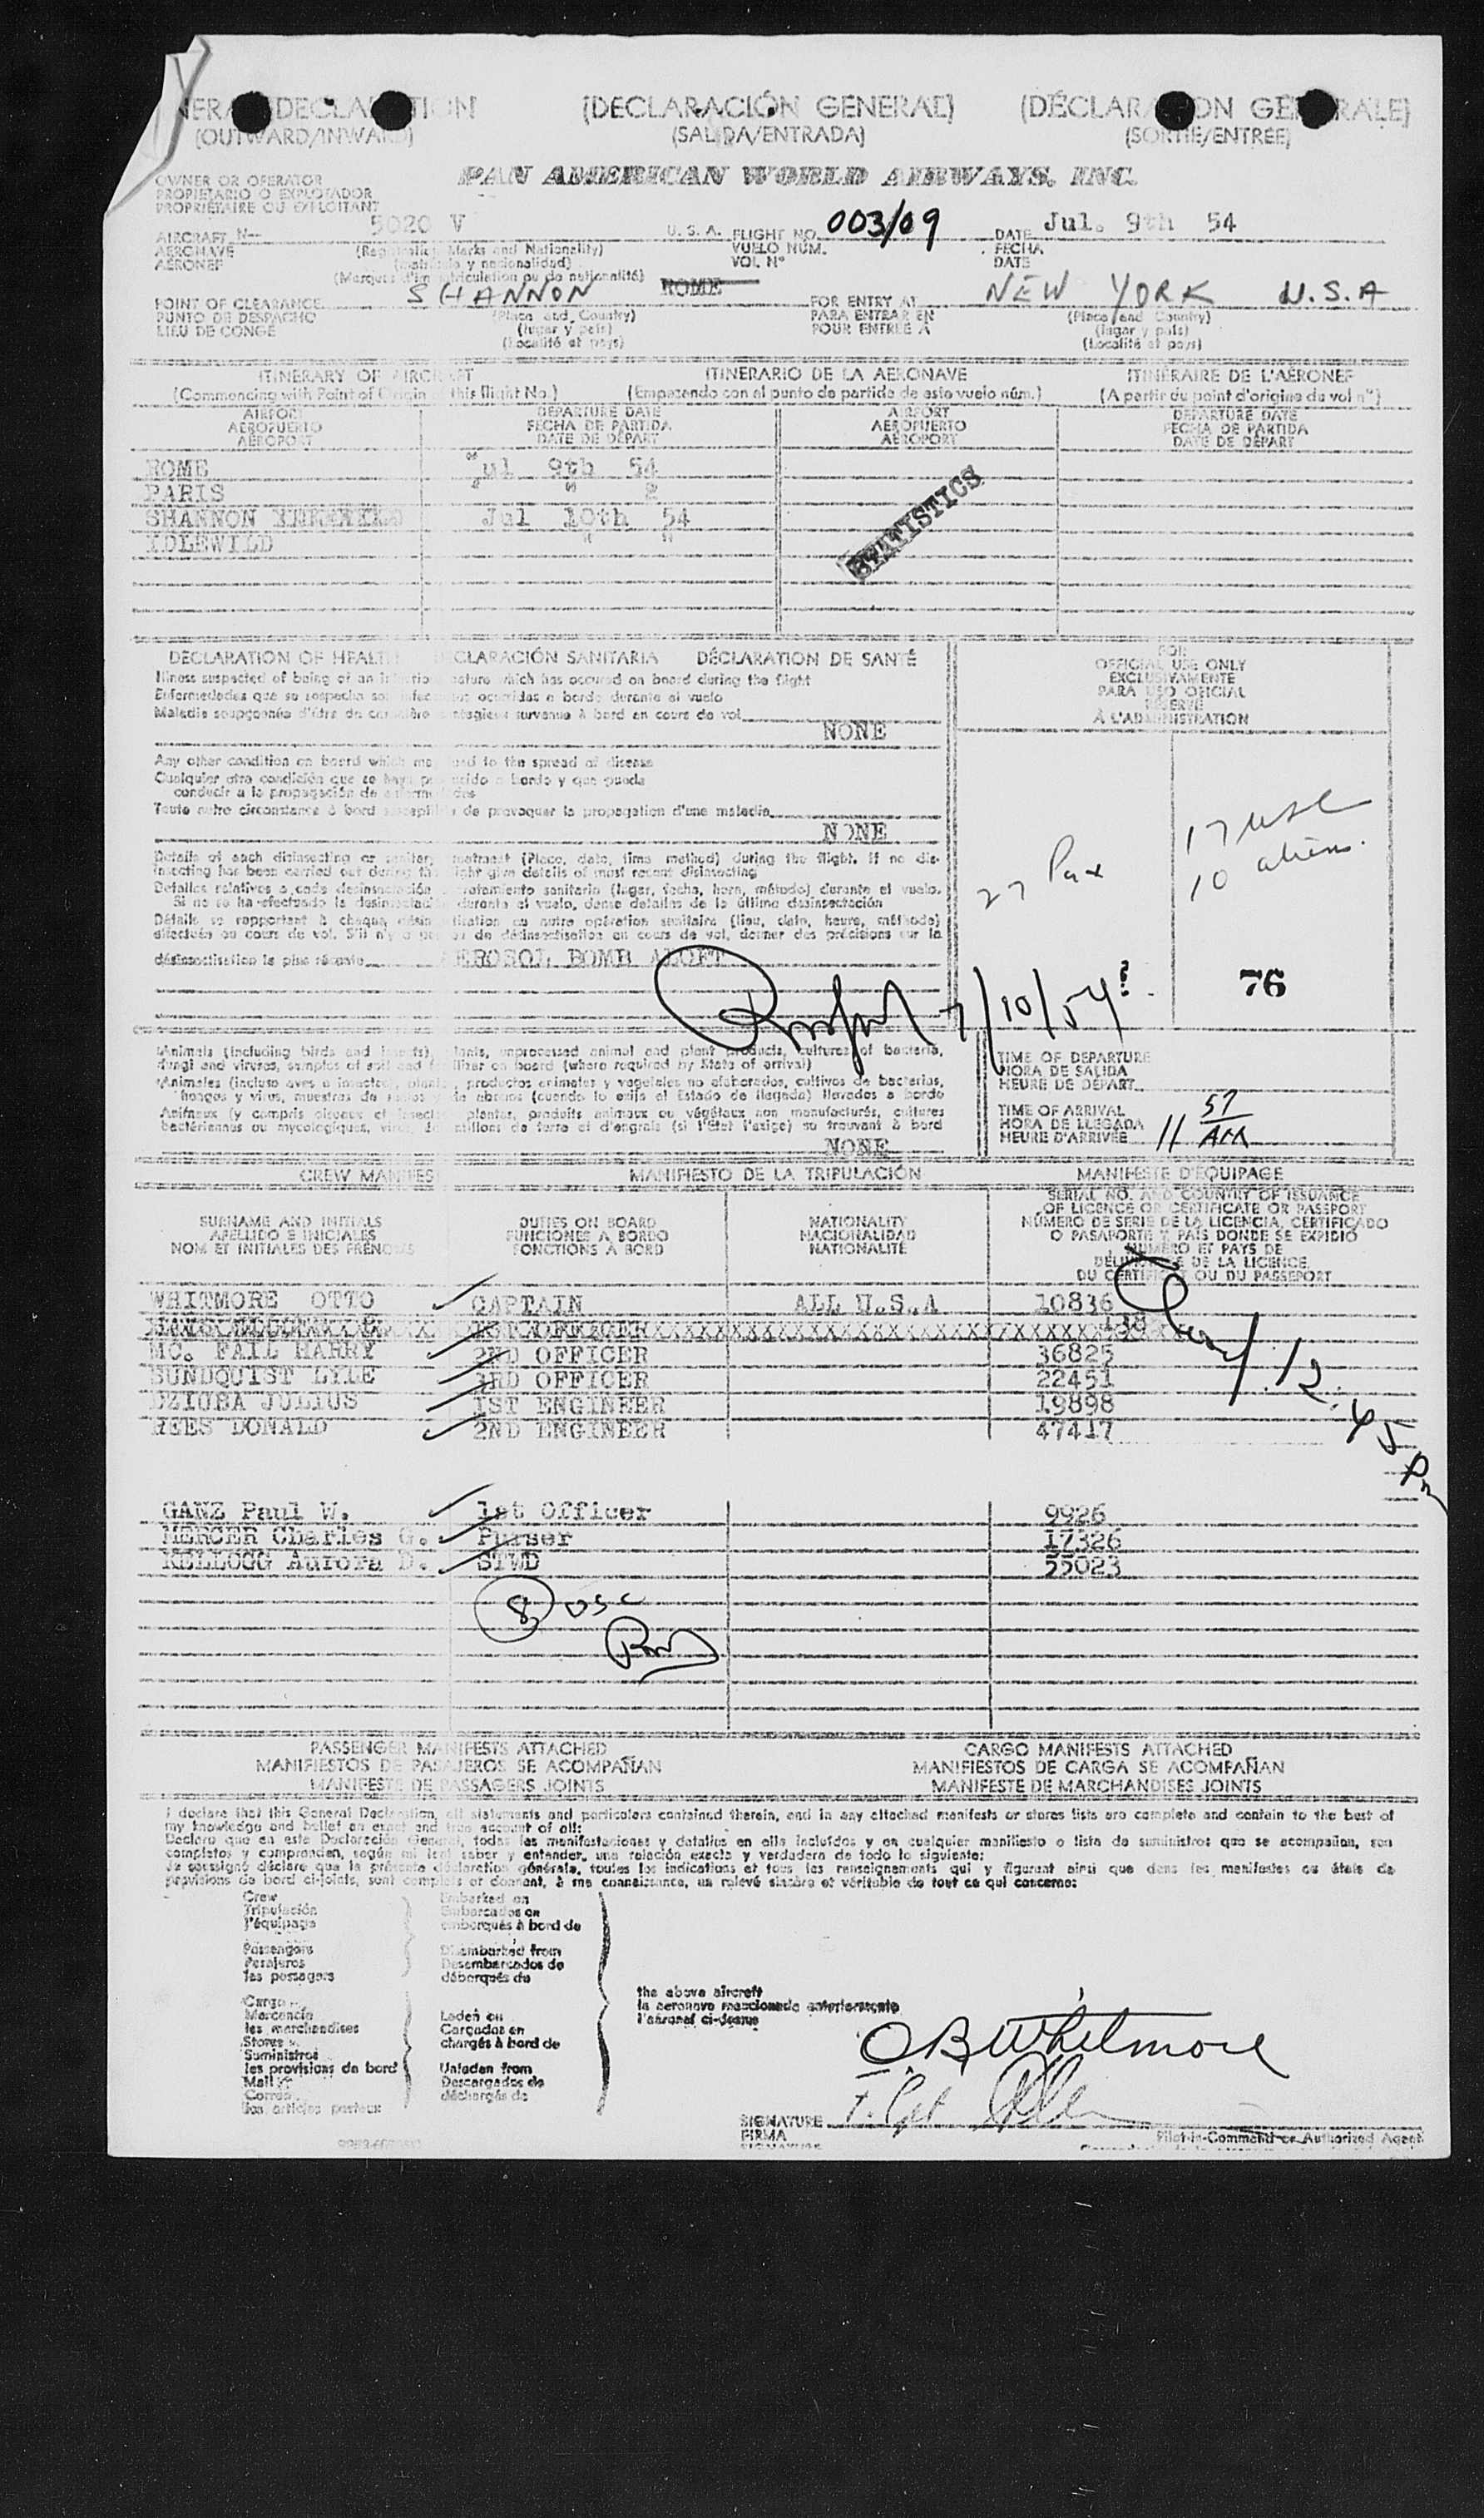 (DECLARACIÓN GENERAL)
(OUTWARD/INWARD) (SALIDA/ENTRADA) (SORTIE/ENTRÉE)
PAN AMERICAN WORLD AIRWAYS, INC.
OWNER OR OPERATOR
PROPIETARIO O EXPLOTADOR
PROPRIÉTAIRE OU EXPLOITANT
AIRCRAFT N— 5020 V U. S. A. FLIGHT NO. 003/09 DATE Jul. 9th 54
AERONAVE VUELO NÚM. FECHA
AÉRONEF VOL Nº DATE
POINT OF CLEARANCE SHANNON ROME FOR ENTRY AT NEW YORK U.S.A
PUNTO DE DESPACHO (Place and Country) PARA ENTRAR EN (Place and Country)
LIEU DE CONGÉ (lugar y país) POUR ENTRÉE À (lugar y país)
(Localité et pays) (Localité et pays)
ITINERARY OF AIRCRAFT ITINERARIO DE LA AERONAVE ITINÉRAIRE DE L'AÉRONEF
(Commencing with Point of Origin of this flight No.) (Empezando con el punto de partida de este vuelo núm.) (A partir du point d'origine du vol nº)
AIRPORT DEPARTURE DATE AIRPORT DEPARTURE DATE
AEROPUERTO FECHA DE PARTIDA AEROPUERTO FECHA DE PARTIDA
AÉROPORT DATE DE DÉPART AÉROPORT DATE DE DÉPART
ROME Jul 9th 54
PARIS " " "
SHANNON Jul 10th 54
IDLEWILD " "
STATISTICS
DECLARATION OF HEALTH DECLARACIÓN SANITARIA DÉCLARATION DE SANTÉ
Illness suspected of being of an infectious nature which has occured on board during the flight
Enfermedades que se sospecha son infecciosas ocurridas a bordo durante el vuelo
Maladie soupçonnée d'être de caractère contagieux survenue à bord en cours de vol
NONE
FOR
OFFICIAL USE ONLY
EXCLUSIVAMENTE
PARA USO OFICIAL
RÉSERVÉ
À L'ADMINISTRATION
Any other condition on board which may lead to the spread of disease
Cualquier otra condición que se haya producido a bordo y que pueda
conducir a la propagación de enfermedades
Toute autre circonstance à bord susceptible de provoquer la propagation d'une maladie
NONE
27 Pax
17 usc
10 aliens.
Details of each disinsecting or sanitary treatment (Place, date, time method) during the flight. If no dis-
insecting has been carried out during the flight give details of most recent disinsecting
Detalles relativos a cada desinsectación o tratamiento sanitario (lugar, fecha, hora, método) durante el vuelo.
Si no se ha efectuado la desinsectación durante el vuelo, dense detalles de la última desinsectación
Détails se rapportant à chaque désinsectisation ou autre opération sanitaire (lieu, date, heure, méthode)
effectuée au cours de vol. S'il n'y a pas eu de désinsectisation en cours de vol, donner des précisions sur la
désinsectisation la plus récente AEROSOL BOMB ALOFT
7/10/54
76
Animals (including birds and insects), plants, unprocessed animal and plant products, cultures of bacteria,
fungi and viruses, samples of soil and fertilizer on board (where required by State of arrival)
Animales (incluso aves e insectos), plantas, productos animales y vegetales no elaborados, cultivos de bacterias,
hongos y virus, muestras de suelos y de abonos (cuando lo exija el Estado de llegada) llevados a bordo
Animaux (y compris oiseaux et insectes), plantes, produits animaux ou végétaux non manufacturés, cultures
bactériennes ou mycologiques, virus, échantillons de terre et d'engrais (si l'État l'exige) se trouvant à bord
NONE
TIME OF DEPARTURE
HORA DE SALIDA
HEURE DE DÉPART
TIME OF ARRIVAL
HORA DE LLEGADA
HEURE D'ARRIVÉE 11 57 AM
CREW MANIFEST MANIFIESTO DE LA TRIPULACIÓN MANIFESTE D'ÉQUIPAGE
SURNAME AND INITIALS
APELLIDO E INICIALES
NOM ET INITIALES DES PRÉNOMS
DUTIES ON BOARD
FUNCIONES A BORDO
FONCTIONS À BORD
NATIONALITY
NACIONALIDAD
NATIONALITÉ
SERIAL NO. AND COUNTRY OF ISSUANCE
OF LICENCE OR CERTIFICATE OR PASSPORT
NÚMERO DE SERIE DE LA LICENCIA, CERTIFICADO
O PASAPORTE Y PAÍS DONDE SE EXPIDIÓ
NUMÉRO ET PAYS DE
DÉLIVRANCE DE LA LICENCE,
DU CERTIFICAT OU DU PASSEPORT
WHITMORE OTTO CAPTAIN ALL U.S.A 10836
1ST OFFICER
MC. FAIL HARRY 2ND OFFICER 36825
SUNDQUIST LYLE 3RD OFFICER 22451
DZIUBA JULIUS 1ST ENGINEER 19898
REES DONALD 2ND ENGINEER 47417
12:45 Pm
GANZ Paul W. 1st Officer 9926
MERCER Charles G. Purser 17326
KELLOGG Aurora D. STWD 55023
8 usc
PASSENGER MANIFESTS ATTACHED CARGO MANIFESTS ATTACHED
MANIFIESTOS DE PASAJEROS SE ACOMPAÑAN MANIFIESTOS DE CARGA SE ACOMPAÑAN
MANIFESTE DE PASSAGERS JOINTS MANIFESTE DE MARCHANDISES JOINTS
I declare that this General Declaration, all statements and particulars contained therein, and in any attached manifests or stores lists are complete and contain to the best of
my knowledge and belief an exact and true account of all:
Declaro que en este Declaración General, todas las manifestaciones y detalles en ella incluídos y en cualquier manifiesto o lista de suministros que se acompañan, son
completos y comprenden, según mi leal saber y entender, una relación exacta y verdadera de todo lo siguiente:
Je soussigné déclare que la présente déclaration générale, toutes les indications et tous les renseignements qui y figurent ainsi que dans les manifestes ou états de
provisions de bord ci-joints, sont complets et donnent, à ma connaissance, un relevé sincère et véritable de tout ce qui concerne:
Crew
Tripulación
l'équipage
Passengers
Pasajeros
les passagers
Cargo
Mercancía
les marchandises
Stores
Suministros
les provisions de bord
Mail
Correo
les articles postaux
Embarked on
Embarcados en
embarqués à bord de
Disembarked from
Desembarcados de
débarqués du
Laden on
Cargados en
chargés à bord de
Unladen from
Descargados de
déchargés de
the above aircraft
la aeronave mencionada anteriormente
l'aéronef ci-dessus
O B Whitmore
SIGNATURE
FIRMA
SIGNATURE
Pilot-in-Command or Authorized Agent